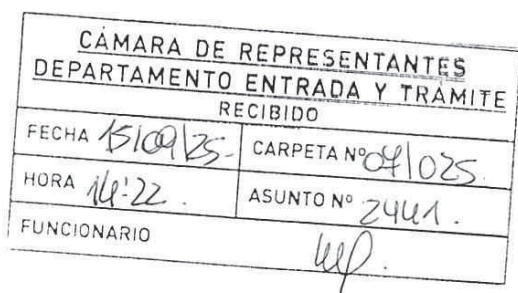 CÁMARA DE REPRESENTANTES
DEPARTAMENTO ENTRADA Y TRÁMITE
RECIBIDO
FECHA 15/09/25- CARPETA Nº 04/025
HORA 14:22. ASUNTO Nº 2441.
FUNCIONARIO